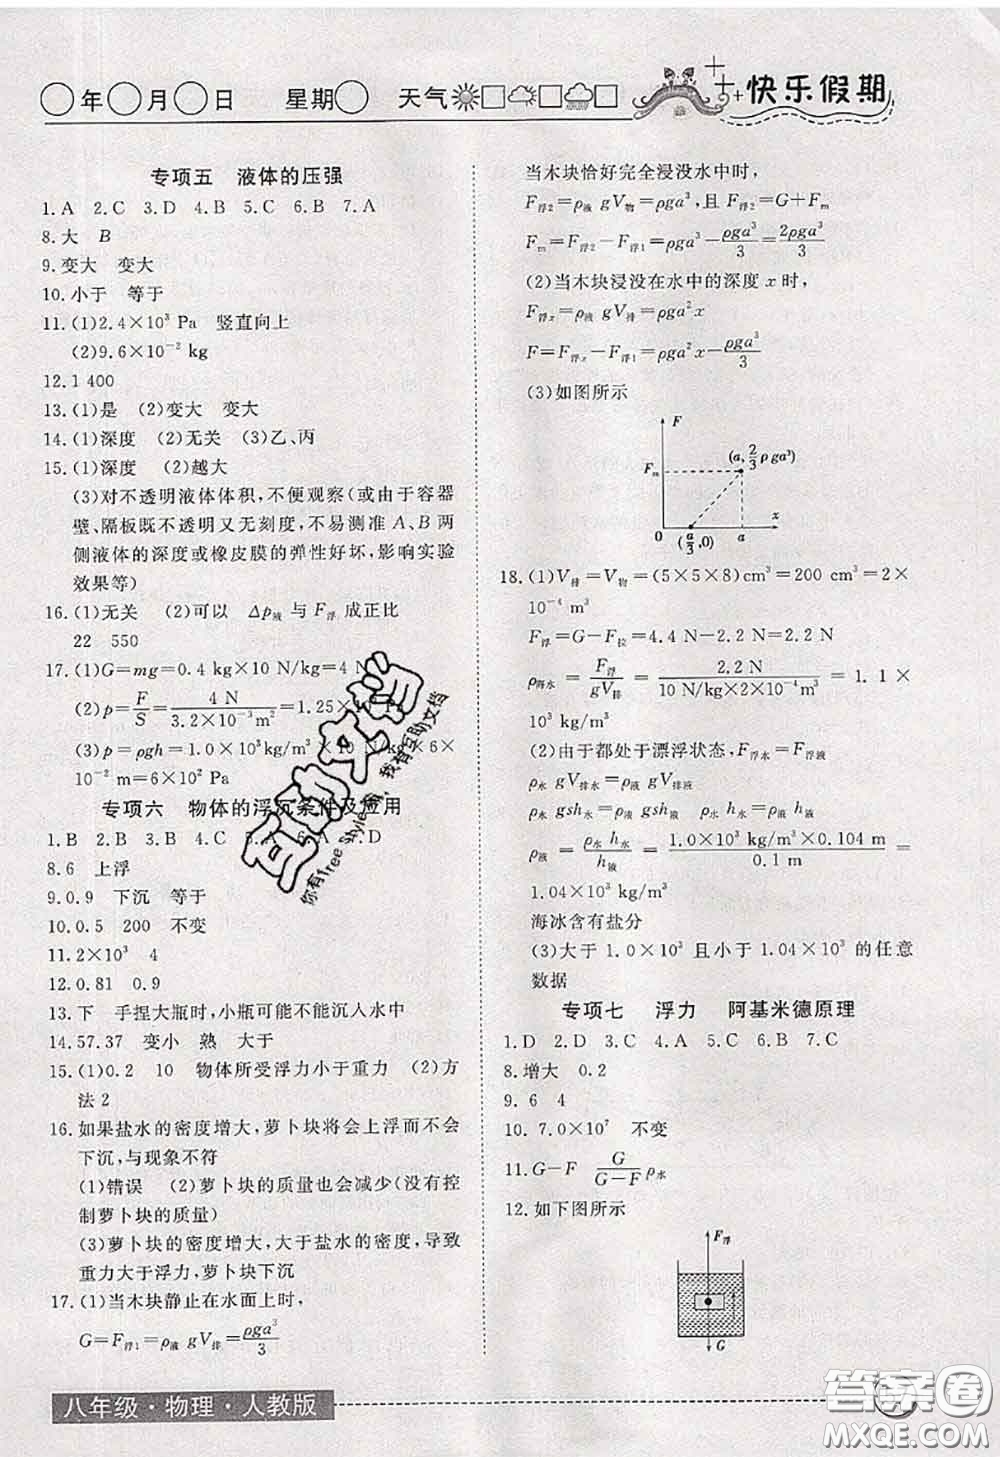 年 月 日 星期 天气 快乐假期
专项五 液体的压强
1.A 2.C 3.D 4.B 5.C 6.B 7.A
8.大 B
9.变大 变大
10.小于 等于
11.(1)2.4×10³ Pa 竖直向上
(2)9.6×10⁻² kg
12.1 400
13.(1)是 (2)变大 变大
14.(1)深度 (2)无关 (3)乙、丙
15.(1)深度 (2)越大
(3)对不透明液体体积,不便观察(或由于容器
壁、隔板既不透明又无刻度,不易测准 A、B 两
侧液体的深度或橡皮膜的弹性好坏,影响实验
效果等)
16.(1)无关 (2)可以 Δp液 与 F浮 成正比
22 550
17.(1)G=mg=0.4 kg×10 N/kg=4 N
(2)p=F/S=4 N/3.2×10⁻³m²=1.25×10
(3)p=ρgh=1.0×10³kg/m³×10 N/kg×6×
10⁻² m=6×10² Pa
专项六 物体的浮沉条件及应用
1.B 2.B 3.B 4.C D
8.6 上浮
9.0.9 下沉 等于
10.0.5 200 不变
11.2×10³ 4
12.0.81 0.9
13.下 手捏大瓶时,小瓶可能不能沉入水中
14.57.37 变小 熟 大于
15.(1)0.2 10 物体所受浮力小于重力 (2)方
法2
16.如果盐水的密度增大,萝卜块将会上浮而不会
下沉,与现象不符
(1)错误 (2)萝卜块的质量也会减少(没有控
制萝卜块的质量)
(3)萝卜块的密度增大,大于盐水的密度,导致
重力大于浮力,萝卜块下沉
17.(1)当木块静止在水面上时,
G=F浮1=ρ液 gV排=ρga³/3
当木块恰好完全浸没水中时,
F浮2=ρ液 gV物=ρga³,且 F浮2=G+Fm
Fm=F浮2-F浮1=ρga³-ρga³/3=2ρga³/3
(2)当木块浸没在水中的深度 x 时,
F浮x=ρ液 gV排=ρga²x
F=F浮x-F浮1=ρga²x-ρga³/3
(3)如图所示
F
(a,2/3 ρga³)
Fm
0 (a/3,0) a x
18.(1)V排=V物=(5×5×8)cm³=200 cm³=2×
10⁻⁴ m³
F浮=G-F拉=4.4 N-2.2 N=2.2 N
ρ海水=F浮/gV排=2.2 N/10 N/kg×2×10⁻⁴m³=1.1×
10³ kg/m³
(2)由于都处于漂浮状态,F浮水=F浮液
ρ水 gV排水=ρ液 gV排液
ρ水 gsh水=ρ液 gsh液
ρ液=ρ水h水/h液=1.0×10³kg/m³×0.104 m/0.1 m=
1.04×10³ kg/m³
海冰含有盐分
(3)大于 1.0×10³ 且小于 1.04×10³ 的任意
数据
专项七 浮力 阿基米德原理
1.D 2.D 3.C 4.B 5.C 6.B 7.C
8.增大 0.2
9.6 4
10.7.0×10⁷ 不变
11.G-F G/G-F ρ水
12.如下图所示
F浮
G
八年级·物理·人教版
互助文档
你有Free Style吗,我有互助文档
答案圈
MXQE.COM